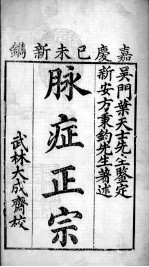 嘉慶己未新鐫
吳門葉天士先生鑒定
新安方東鈞先生著述
脉症正宗
武林大成齋校